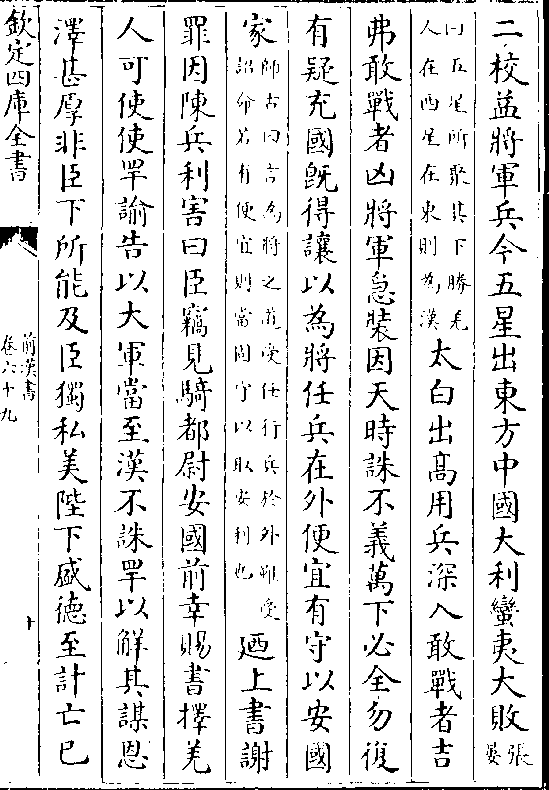 二校益將軍兵今五星出東方中國大利蠻夷大敗張晏
曰五星所聚其下勝羌人在西星在東則為漢太白出高用兵深入敢戰者吉
弗敢戰者凶將軍急裝因天時誅不義萬下必全勿復
有疑充國旣得讓以為將任兵在外便宜有守以安國
家師古曰言為將之道受任行兵於外雖受詔命若有便宜則當固守以取安利也廼上書謝
罪因陳兵利害曰臣竊見騎都尉安國前幸賜書擇羌
人可使使罕諭告以大軍當至漢不誅罕以解其謀恩
澤甚厚非臣下所能及臣獨私美陛下盛德至計亡已
欽定四庫全書
前漢書
卷六十九
十